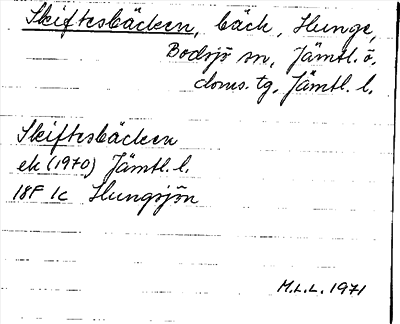 Skiftesbäcken, bäck, Hunge,
Bodsjö sn, Jämtl. ö.
doms. tg, Jämtl. l.
Skiftesbäcken
ek (1970) Jämtl. l.
18F 1c Hungsjön
M.L.L. 1971